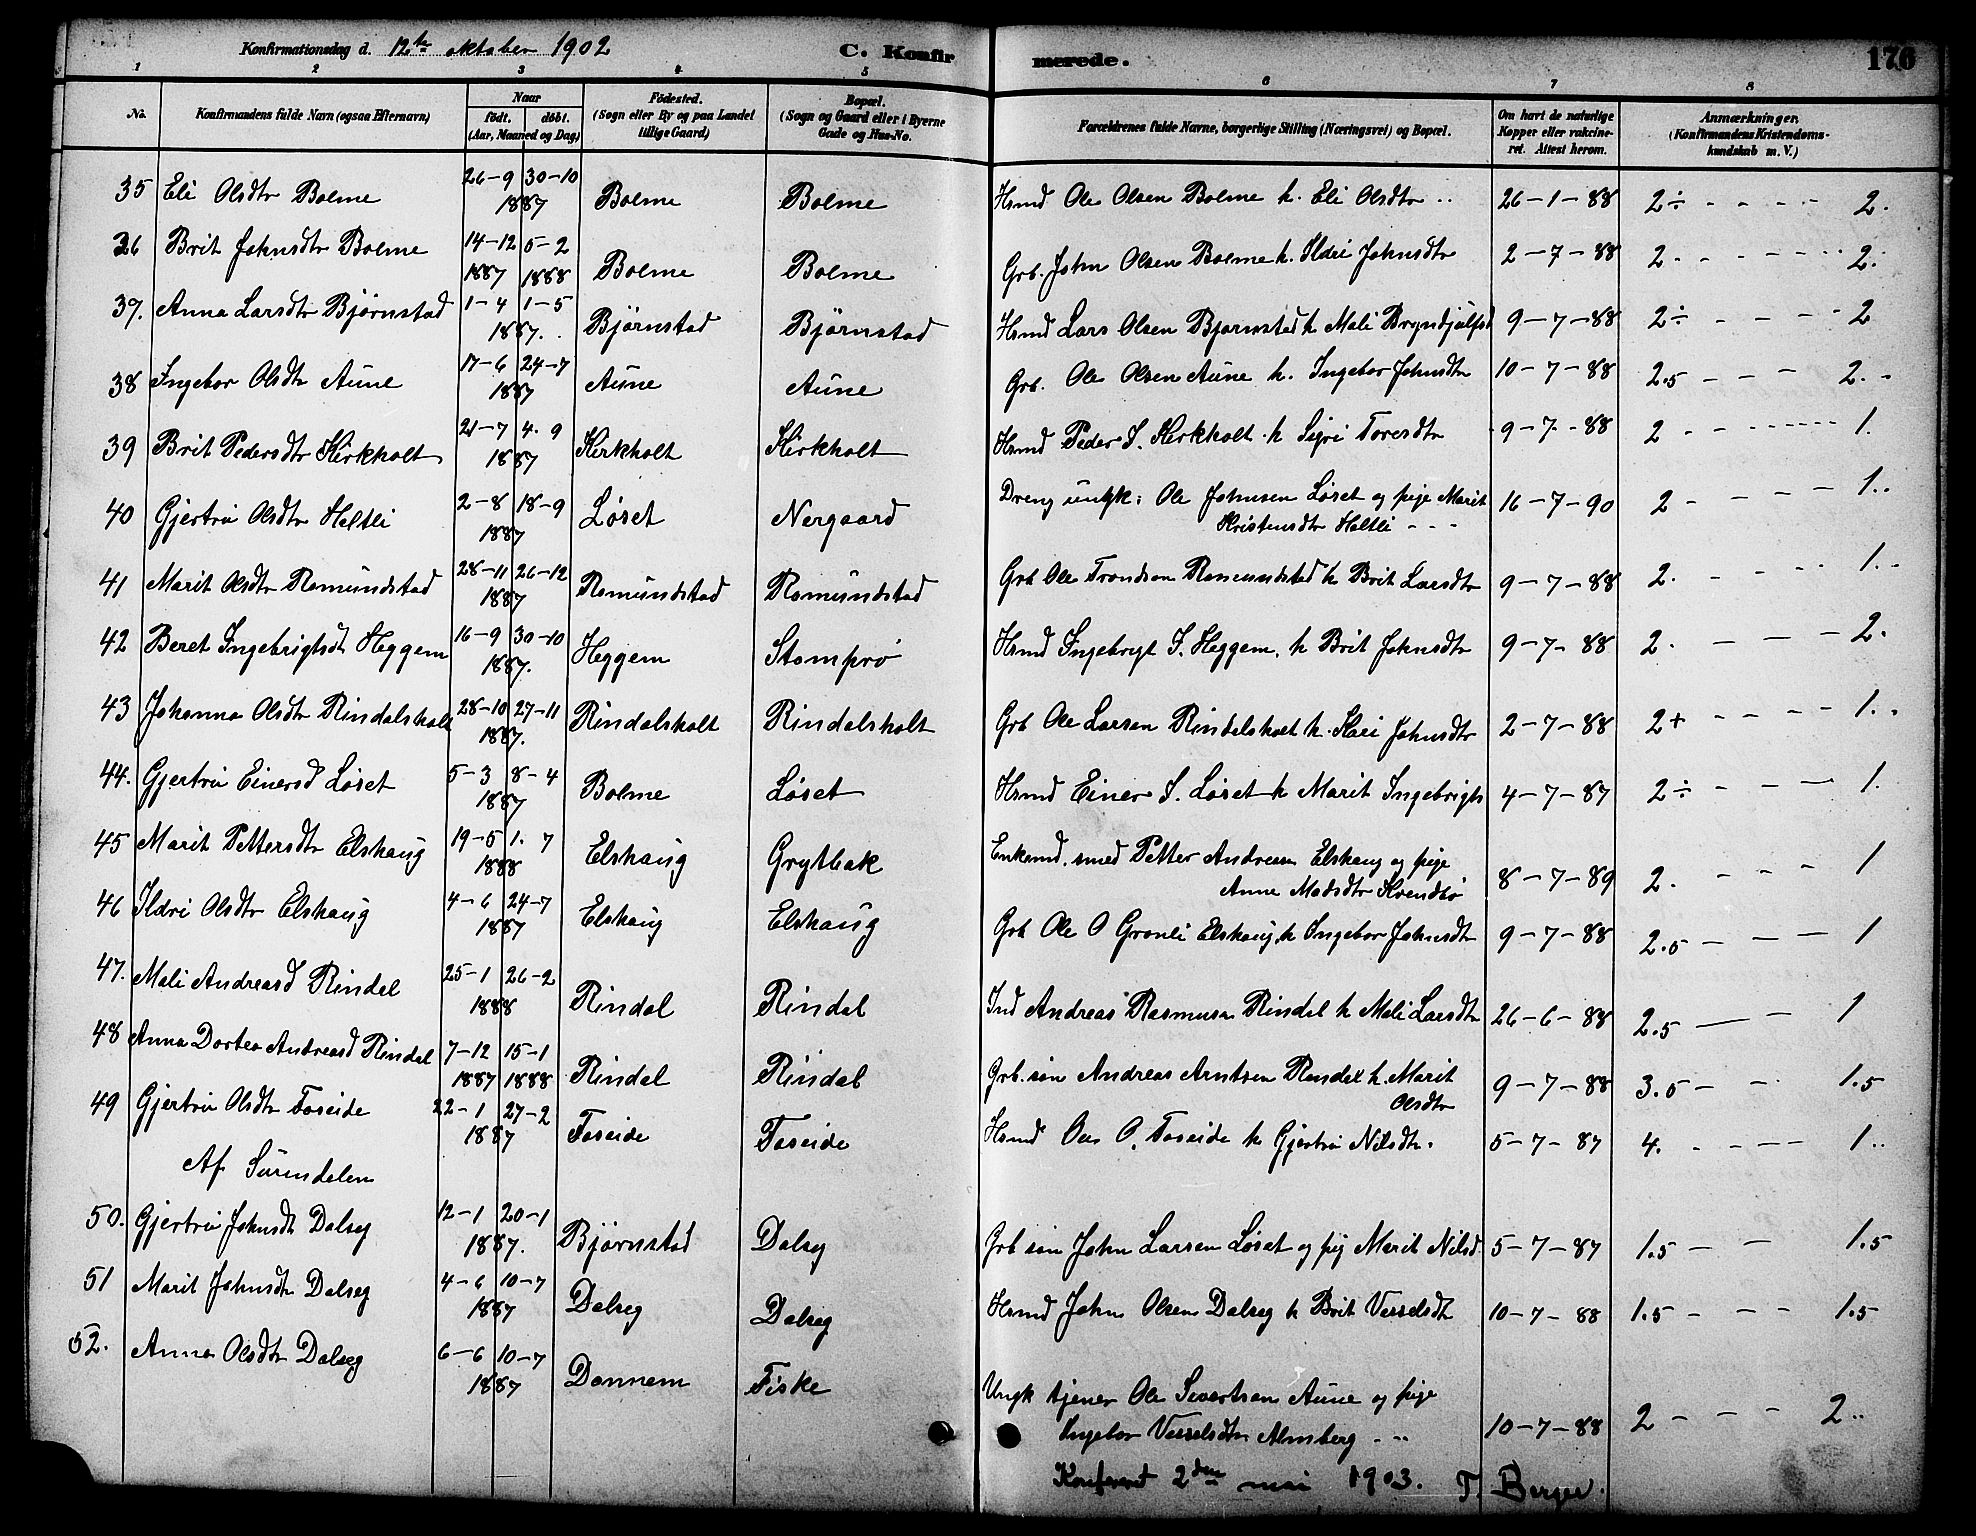 Konfirmationsdag d. 12te oktober 1902 C. Konfirmerede. 176
1 2 3 4 5 6 7 8
No. Konfirmandens fulde Navn (ogsaa Efternavn) Naar födt. döbt. (Aar, Maaned og Dag) Födested. (Sogn eller By og paa Landet tillige Gaard) Bopæl. (Sogn og Gaard eller i Byerne Gade og Hus-No. Forældrenes fulde Navne, borgerlige Stilling (Næringsvei) og Bopæl. Om havt de naturlige Kopper eller vakcineret. Attest herom. Anmærkninger. (Konfirmandens Kristendomskundskab m. V.)
35 Eli Olsdtr Bolme 26-9 30-10 1887 Bolme Bolme Hsmd Ole Olsen Bolme h. Eli Olsdtr 26-1-88 2÷ - - - - 2.
36 Brit Johnsdtr Bolme 14-12 1887 5-2 1888 Bolme Bolme Grb. John Olsen Bolme h. Ildri Johnsdtr 2-7-88 2. - - - - 2.
37. Anna Larsdtr Bjørnstad 1-4 1-5 1887. Bjørnstad Bjørnstad Hsmd Lars Olsen Bjørnstad h Mali Bryndjulfsd 9-7-88 2÷ - - - - 2
38 Ingebor Olsdtr Aune 17-6 24-7 1887 Aune Aune Grb. Ole Olsen Aune h. Ingebor Johnsdtr 10-7-88 2.5 - - - 2. -
39 Brit Pedersdtr Kirkholt 21-7 4. 9 1887 Kirkholt Kirkholt Hsmd Peder S. Kirkholt h Sigri Toresdtr 9-7-88 2 - - - - 1.
40 Gjertru Olsdtr Holtli 2-8 18-9 1887 Løset Nergaard Dreng ungk: Ole Johnsen Løset og pige Marit
Kristensdtr Holtli - - - 16-7-90 2 - - - - 1..
41 Marit Olsdtr Romundstad 28-11 26-12 1887 Romundstad Romundstad Grb Ole Trondsen Romundstad h Brit Larsdtr 9-7-88 2. - - - - 1..
42 Beret Ingebrigtsdt Heggem 16-9 30-10 1887. Heggem Stomprø Hsmd Ingebrigt I. Heggem. h Brit Johnsdtr 9-7-88 2. - - - 2.
43 Johanna Olsdtr Rindalsholt 28-10 27-11 1887. Rindalsholt Rindalsholt Grb Ole Larsen Rindalsholt h. Kari Johnsdtr 2-7-88 2+ - - - - 1..
44. Gjertru Einersd Løset 5-3 8-4 1887 Bolme Løset Hsmd Einer S. Løset h Marit Ingebrigts 4-7-87 2÷ - - - 1.
45 Marit Pettersdtr Elshaug 19-5 1. 7 1888 Elshaug Grytbak Enkemd. smed Petter Andresen Elshaug og pige
Anne Madsdtr Kvendbø 8-7-89 2. - - - 1
46 Ildri Olsdtr Elshaug 4-6 24-7 1887 Elshaug Elshaug Grb Ole O Grønli Elshaug h Ingebor Johnsdtr 9-7-88 2.5 - - - 1
47. Mali Andreasd Rindal 25-1 26-2 1888 Rindal Rindal Ind Andreas Rasmusen Rindal h Mali Larsdtr 26-6-88 2.5 - - 1
48 Anna Dortea Andreasd Rindal 7-12 1887 15-1 1888 Rindal Rindal Grb. søn Andreas Arntsen Rindal h. Marit
Olsdtr 9-7-88 3.5 - - 1.5
49 Gjertru Olsdtr Foseide 22-1 27-2 1887 Foseide Foseide Hsmd Ole O. Foseide h Gjertru Nilsdtr. 5-7-87 4. - - - - 1..
Af Surendalen
50. Gjertru Johnsdt Dalseg 12-1 20-1 1887. Bjørnstad Dalseg Grb søn John Larsen Løset og pig Marit Nilsd 5-7-87 1.5 - - 1.5
51 Marit Johnsdtr Dalseg 4-6 10-7 1887 Dalseg Dalseg Hsmd John Olsen Dalseg h Brit Vesselsdt 10-7-88 1.5 - - - 1.5
52. Anne Olsdtr Dalseg 6-6 10-7 1887 Dønnem Fiske Ungk tjener Ole Sivertsen Aune og pige
Ingebor Vesselsdtr Almberg - - 10-7-88 2 - - - 2..
Konfereret 2den mai 1903. T. Berger.